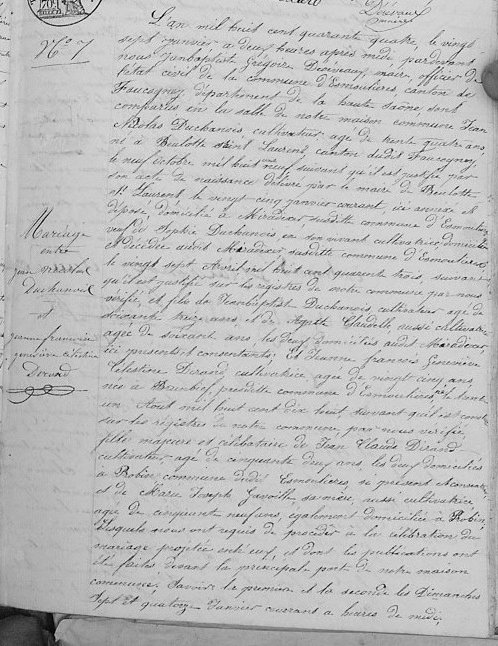 N° 7
L'an mil huit cent quarante quatre, le vingt
sept janvier à deux heures après midi, pardevant
nous Jeanbaptiste Grégoire maire, officier de
l'état civil de la commune d'Esmoulières, canton de
Faucogney, département de la haute Saône sont
comparus en la salle de notre maison commune Jean
Nicolas Duchanois, cultivateur agé de trente quatre ans
né à Beulotte Saint Laurent canton dudit Faucogney
le neuf octobre mil huit cent neuf suivant qu'il est justifié par
son acte de naissance délivré par le maire de Beulotte
St Laurent le vingt cinq janvier courant, ici annexé et
déposé, domicilié à susdite commune d'Esmoulières
veuf de Sophie Duchanois en son vivant cultivatrice domiciliée
et décédée audit susdite commune d'Esmoulières
le vingt sept Avril mil huit cent quarante trois suivant
qu'il est justifié sur les registres de notre commune par nous
vérifié, et fils de Jeanbaptiste Duchanois, cultivateur agé de
soixante treize ans, et de Agathe aussi cultivatrice
agée de soixante ans, les deux domiciliés audit
ici présents et consentants; et Jeanne françoise Geneviève
Célestine Dirand, cultivatrice agée de vingt cinq ans
née à susdite commune d'Esmoulières, le trente
un Aout mil huit cent dix huit, suivant qu'il est constaté
sur les registres de notre commune par nous vérifié
fille majeure et célibataire de Jean Claude Dirand
cultivateur, agé de cinquante deux ans, les deux domiciliés
à Robin, commune dudit Esmoulières, ici présent et consentant
et de Marie Joseph sa mère, aussi cultivatrice
agée de cinquante neuf ans, également domiciliée à Robin
Lesquels nous ont requis de procéder à la célébration du
mariage projetté entre eux, et dont les publications ont
été faites devant la principale porte de notre maison
commune; Savoir la première et la seconde les Dimanches
Sept et quatorze Janvier courant à heures de midi,
Mariage
entre
Jean Nicolas
Duchanois
et
jeanne françoise
geneviève célestine
Dirand